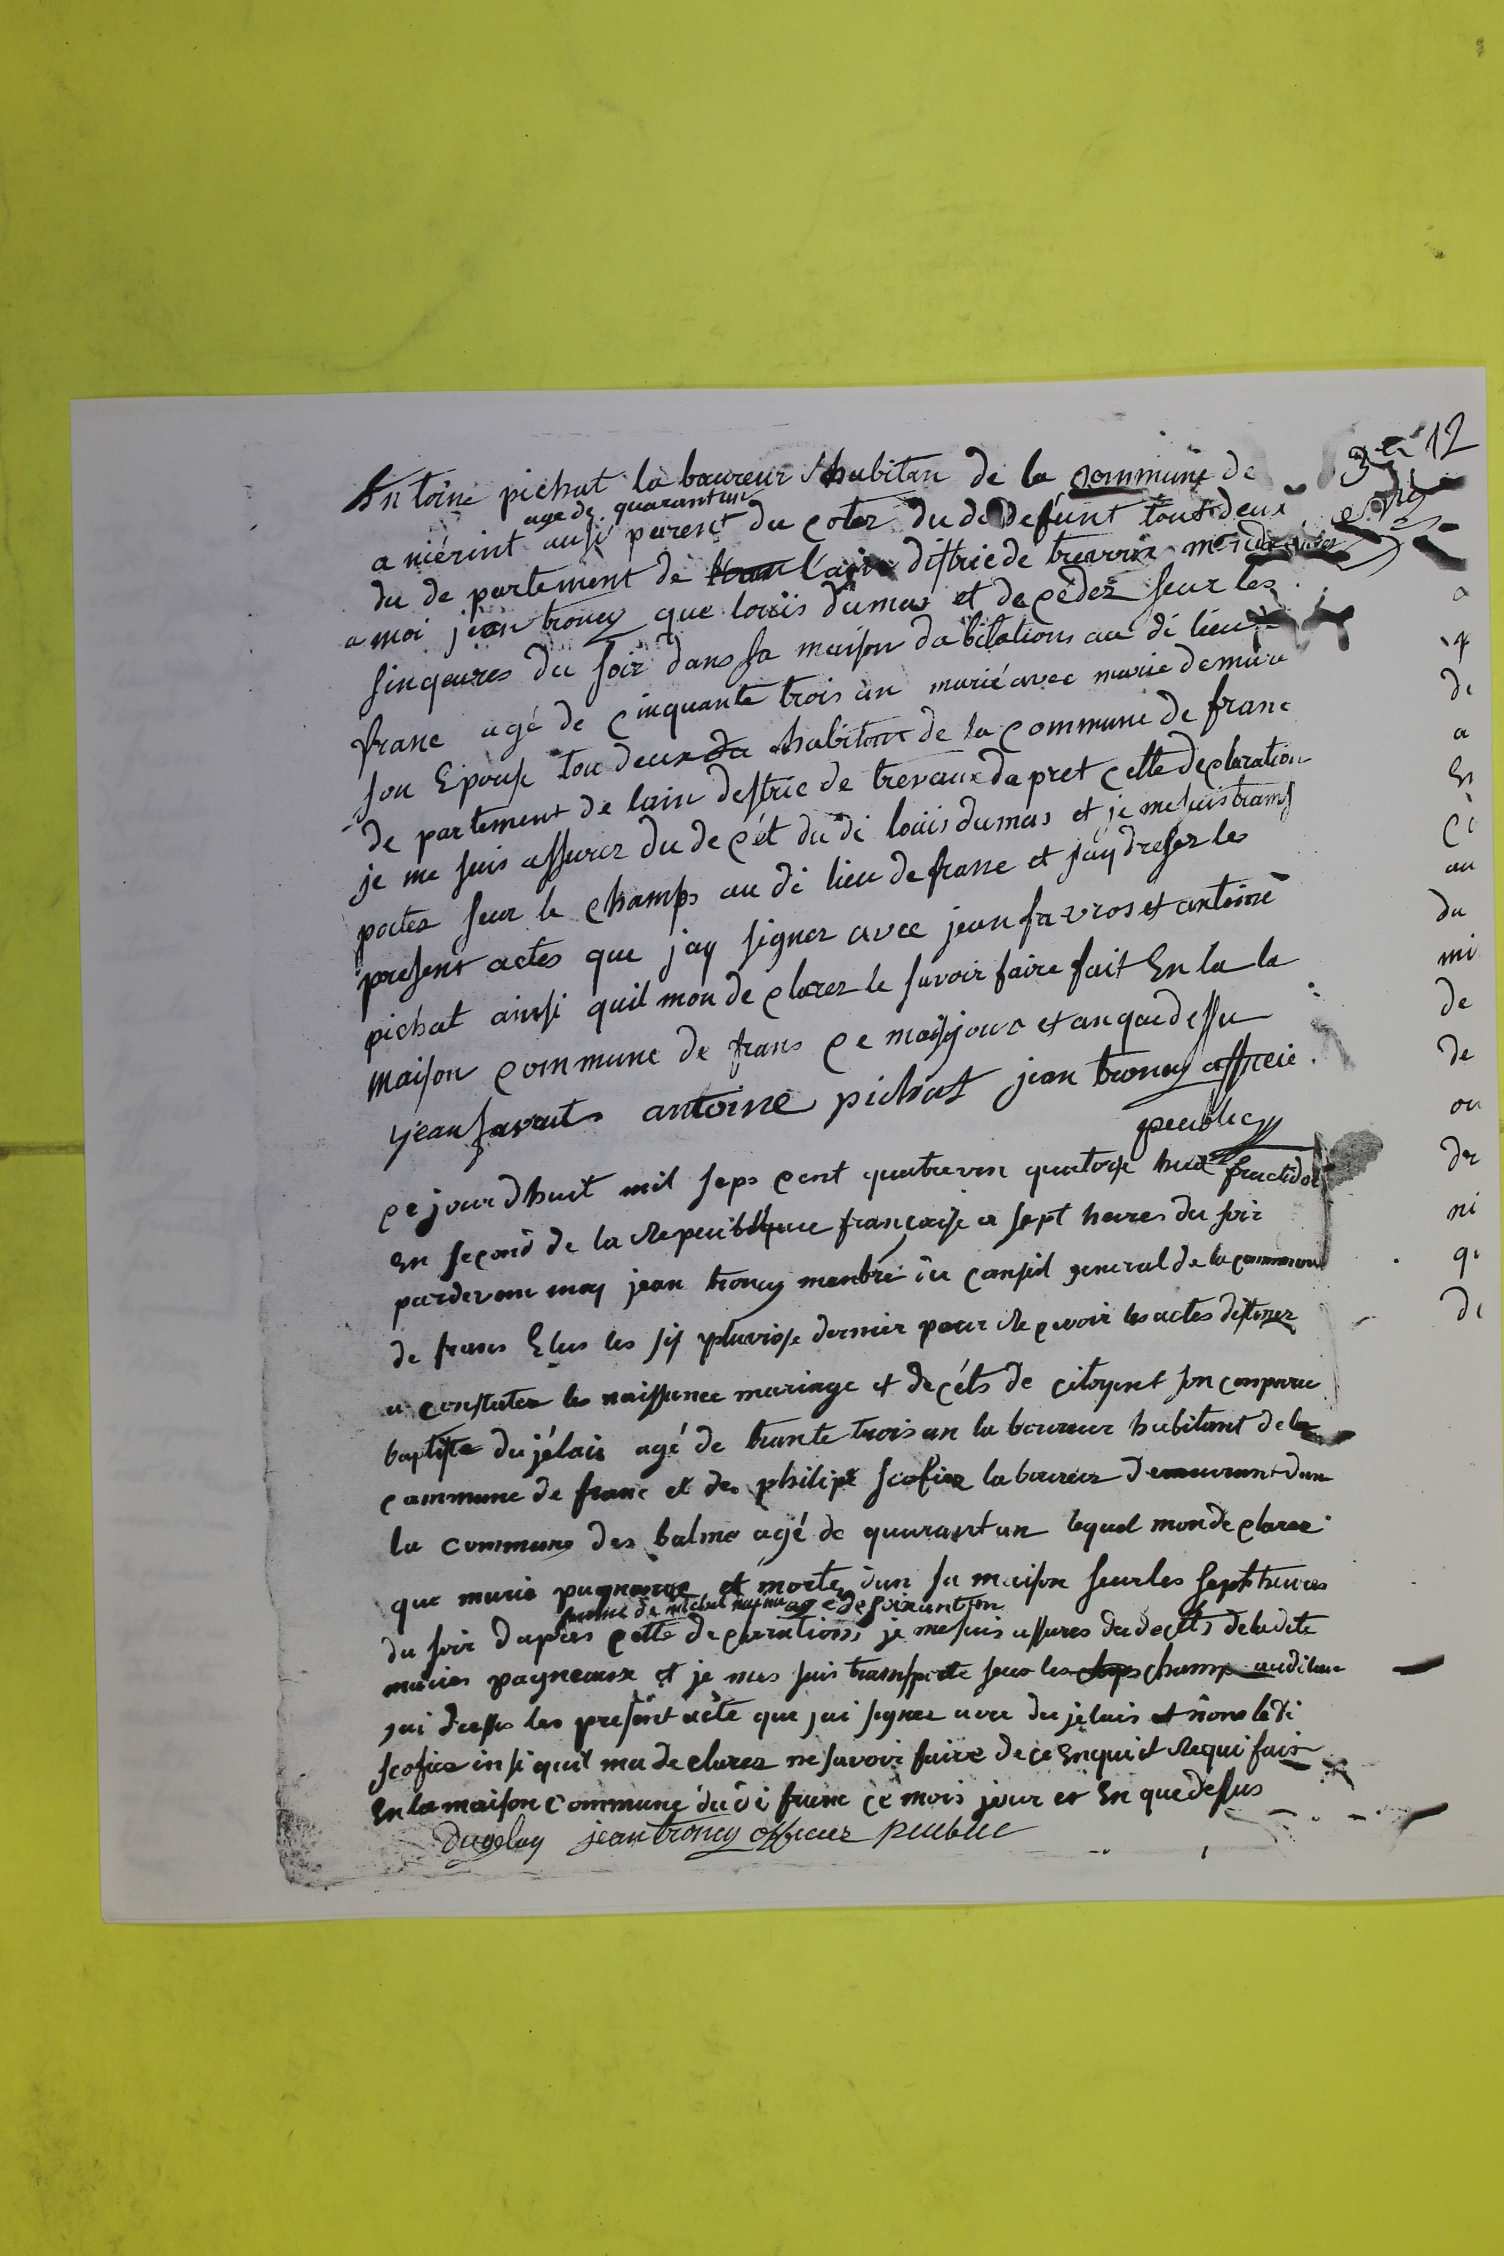 3 et 12
Antoine pichat la boureur habitan de la commune de
age de quarant un
a niérint ausi parent du coter du di defunt tout deux
du de partement de l'ain distric de trevoux
a moi jean troncy que loüis dumas et de céder seur les
sinqeures du soir dans sa maison dabitations au di lieu
franc agé de cinquante trois an marié avec marie demure
son Epouse tou deux habitant de la commune de franc
de partement de lain destric de trevaux da pret cette declaration
je me suis assurer du de cét du di loüis dumas et je me suis trans
porter seur le champs au di lieu de franc et jay dreser les
present actes que jay signer avec jean favros et antoine
pichat ainsi quil mon de clarez le savoir faire fait En la la
maison commune de frans ce mois jour et an que dessu
jean favrat antoine pichat jean troncy officié
peublic
ce jour dhuit mil seps cent quatrevin quatorze huit fructidor
En second de la Republique française a sept heures du soir
parde van moy jean troncy menbre du conseil general de la commune
de frans Elus les six pluviose dernier pour Re cevoir les actes destinez
a constater les naissance mariage et décéts de citoyent son comparu
baptiste du jélais agé de trante trois an la boureur habitant de la
commune de franc et de philipe scofier la boureur demeurant dan
la commune des balme agé de quarant an lequel mon de clarer
que marie pagneaux et morte dan sa maison seurles sept heures
femme de michel agé de soixant an
du soir dapres cette declarations je me suis assures du decéts de la dite
maries pagneaux et je mes suis transporte seur les champ au di lieu
jai dresse les present acte que jai signer avec du jelais et nons le di
scofier insi quil ma de clarez ne savoir faire de ce Enquit et Requi fait
En la maison commune du di franc ce mois jour et En que dessus
Dugelay jean troncy officier peublic
a
di
a
En
ci
au
du
mi
de
de
ou
der
ni
qi
di